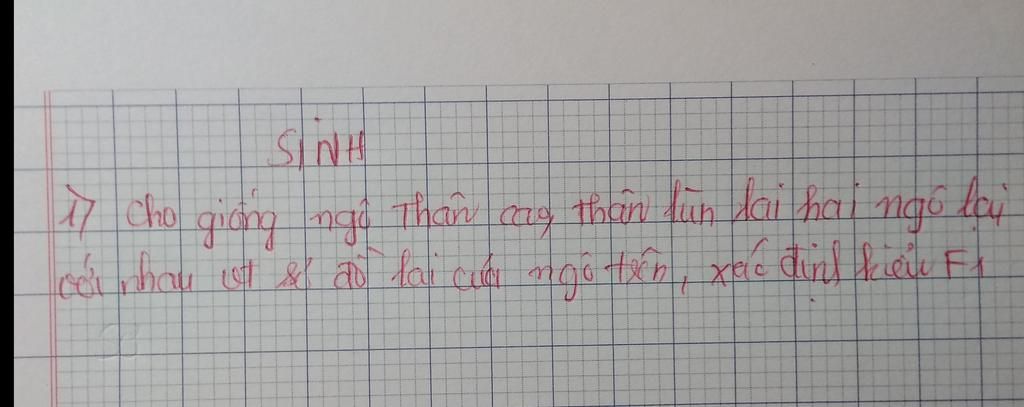 SINH
1) Cho giống ngô thân cag thân lùn lai hai ngô lai
với nhau vt sơ đồ lai của ngô trên, xác định kiểu F1